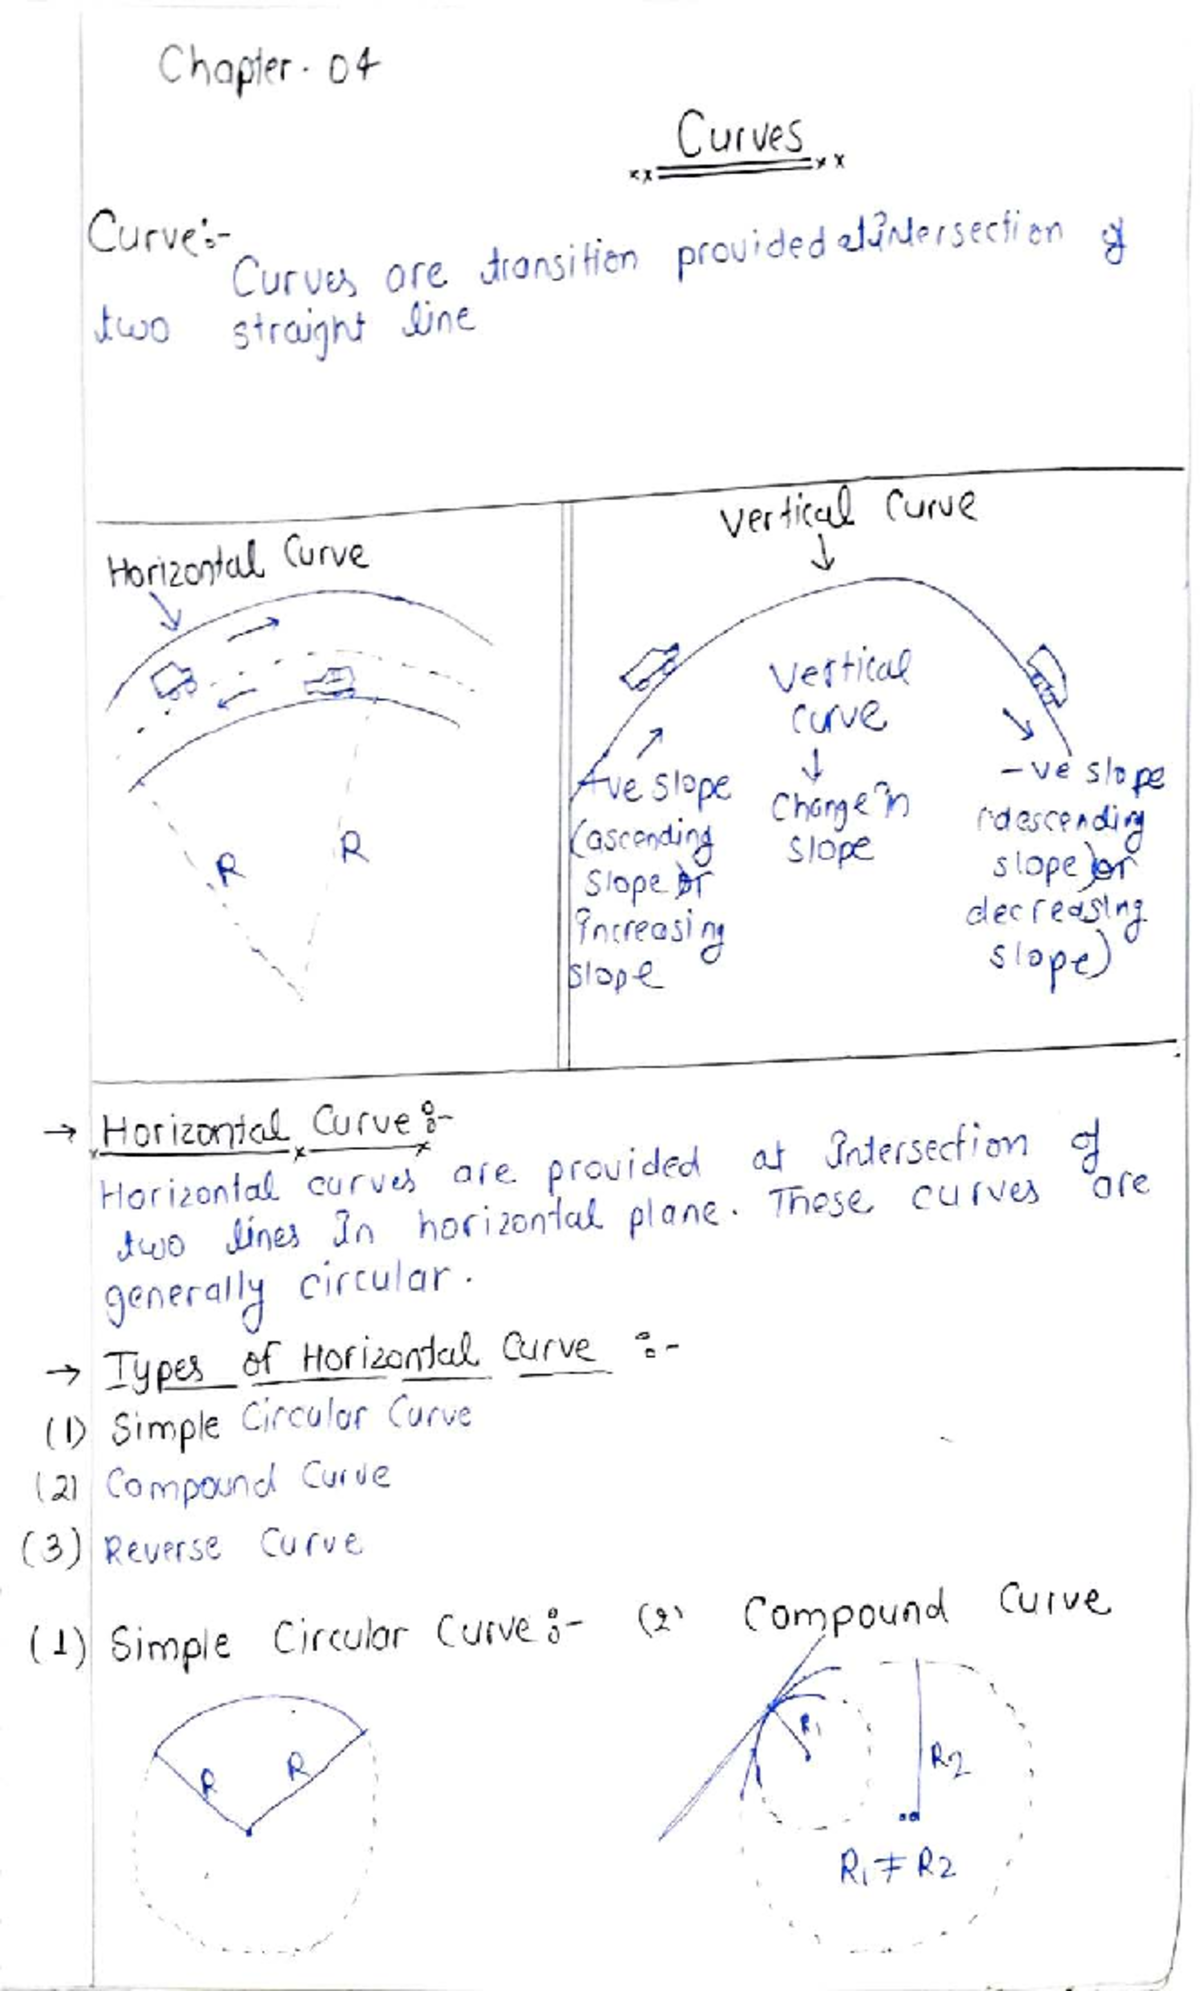 Chapter. 04
Curves
Curve:-
Curves are transition provided at intersection of
two straight line
Horizontal Curve
R
R
Vertical Curve
Vertical
curve
Change in
slope
+ve slope
(ascending
slope or
increasing
slope
-ve slope
(descending
slope) or
decreasing
slope)
→ Horizontal Curve:-
Horizontal curves are provided at intersection of
two lines in horizontal plane. These curves are
generally circular.
→ Types of Horizontal Curve :-
(1) Simple Circular Curve
(2) Compound Curve
(3) Reverse Curve
(1) Simple Circular Curve:-
R
R
(2) Compound Curve
R1
R2
R1 ≠ R2